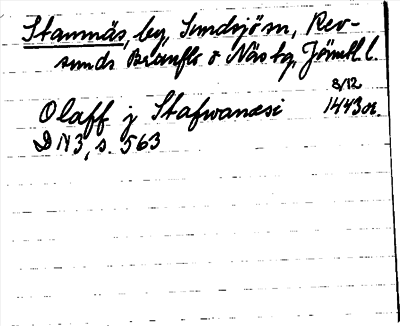 Stamnäs, by, Sundsjö sn, Rev-
sunds Brunflo o Näs tg, Jämtl. l.
8/12
Olaff j Stafwanæsi 1443 or.
DN 3, s. 563